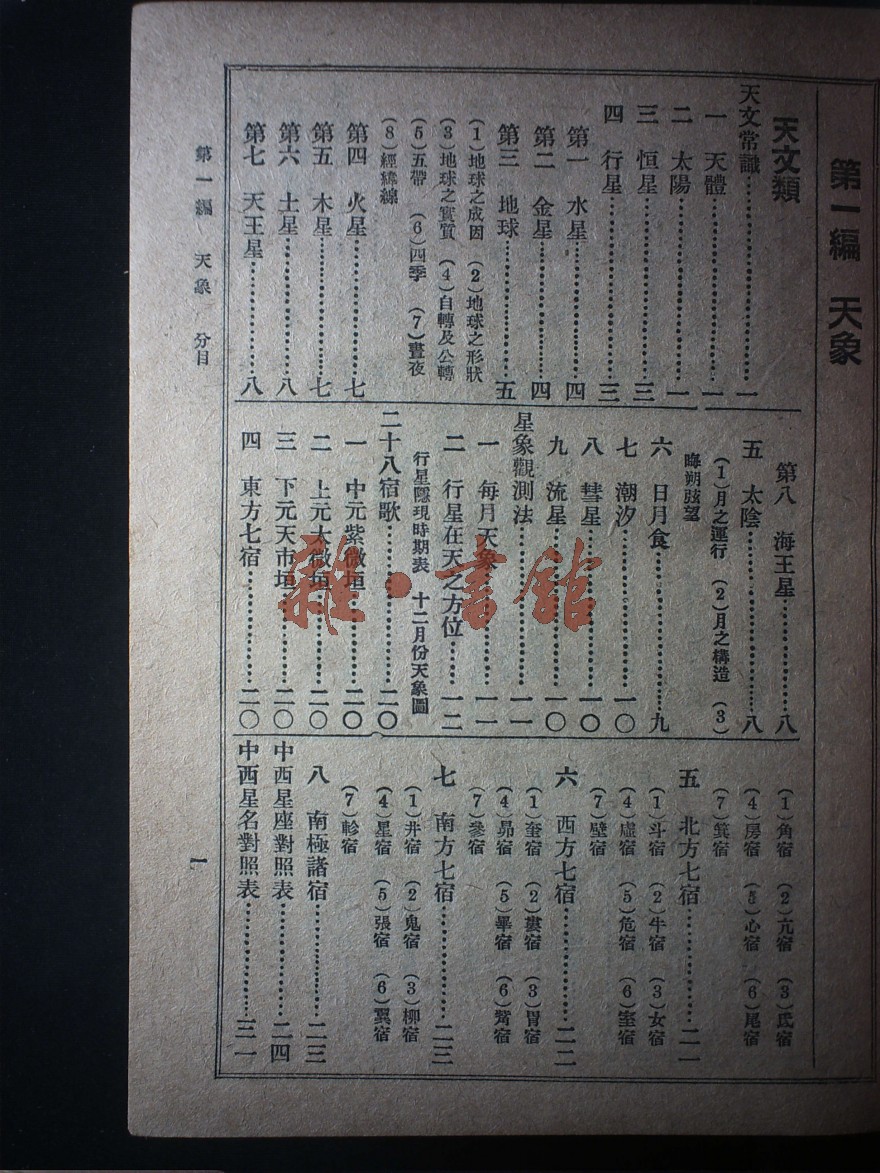 第一編 天象
天文類
天文常識……一
一 天體……一
二 太陽……一
三 恒星……三
四 行星……三
第一 水星……四
第二 金星……四
第三 地球……五
(1)地球之成因 (2)地球之形狀
(3)地球之實質 (4)自轉及公轉
(5)五帶 (6)四季 (7)晝夜
(8)經緯線
第四 火星……七
第五 木星……七
第六 土星……八
第七 天王星……八
第八 海王星……八
五 太陰……八
(1)月之運行 (2)月之構造 (3)
晦朔弦望
六 日月食……九
七 潮汐……一〇
八 彗星……一〇
九 流星……一〇
星象觀測法……一一
一 每月天象……一一
二 行星在天之方位……一二
行星隱現時期表 十二月份天象圖
二十八宿歌……二〇
一 中元紫微垣……二〇
二 上元太微垣……二〇
三 下元天市垣……二〇
四 東方七宿……二〇
(1)角宿 (2)亢宿 (3)氐宿
(4)房宿 (5)心宿 (6)尾宿
(7)箕宿
五 北方七宿……二一
(1)斗宿 (2)牛宿 (3)女宿
(4)虛宿 (5)危宿 (6)室宿
(7)壁宿
六 西方七宿……二二
(1)奎宿 (2)婁宿 (3)胃宿
(4)昴宿 (5)畢宿 (6)觜宿
(7)參宿
七 南方七宿……二三
(1)井宿 (2)鬼宿 (3)柳宿
(4)星宿 (5)張宿 (6)翼宿
(7)軫宿
八 南極諸宿……二三
中西星座對照表……二四
中西星名對照表……三一
第一編 天象 分目
一
雜·書館